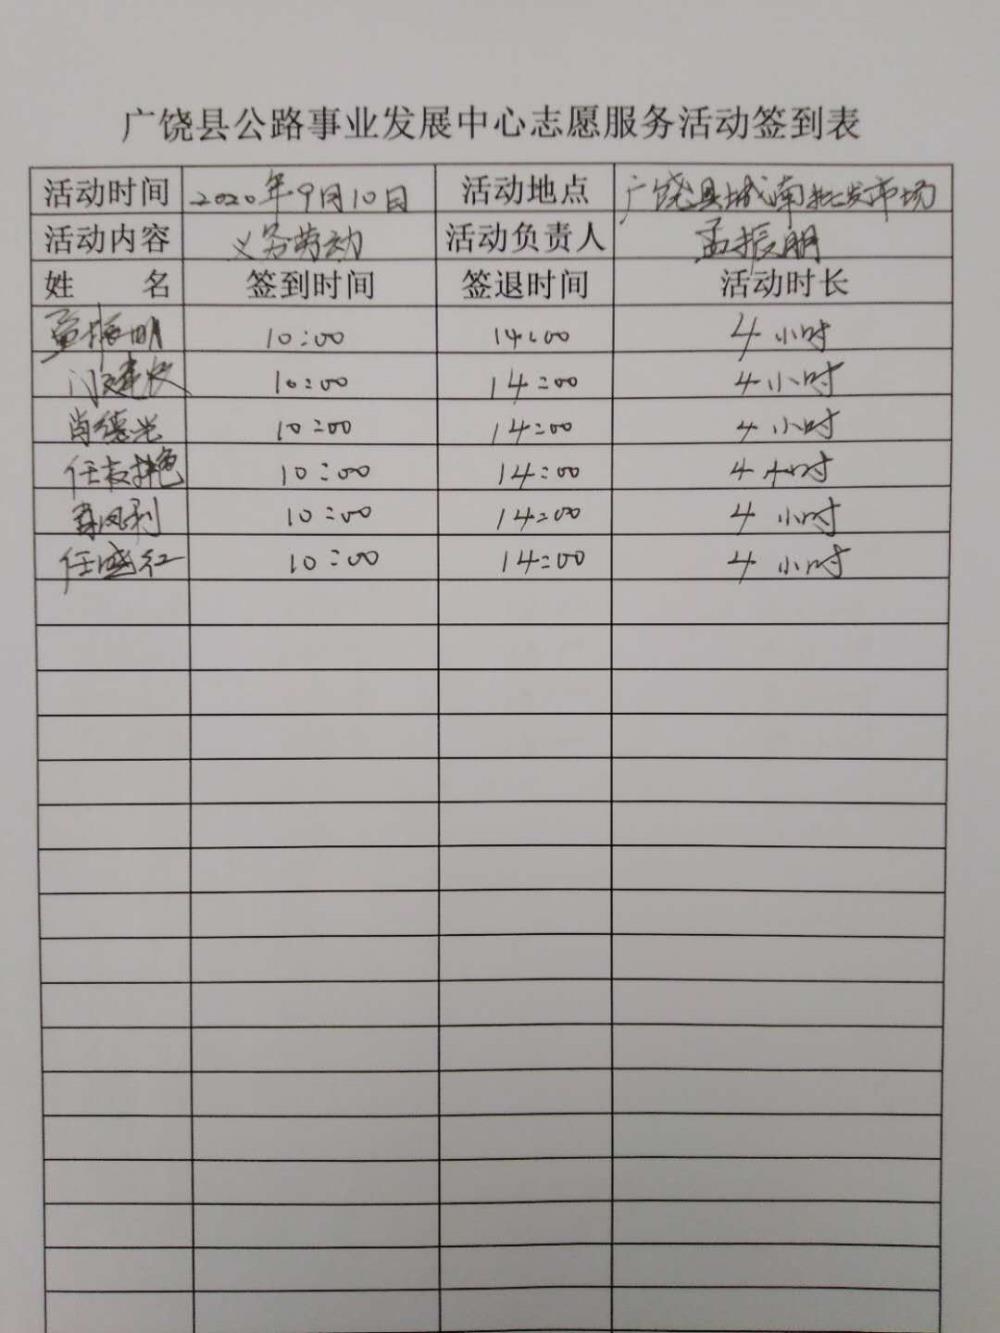 广饶县公路事业发展中心志愿服务活动签到表
活动时间 2020年9月10日 活动地点 广饶县城南批发市场
活动内容 义务劳动 活动负责人 孟振明
姓 名 签到时间 签退时间 活动时长
孟振明 10:00 14:00 4小时
10:00 14:00 4小时
肖德光 10:00 14:00 4小时
10:00 14:00 4小时
10:00 14:00 4小时
任盛红 10:00 14:00 4小时